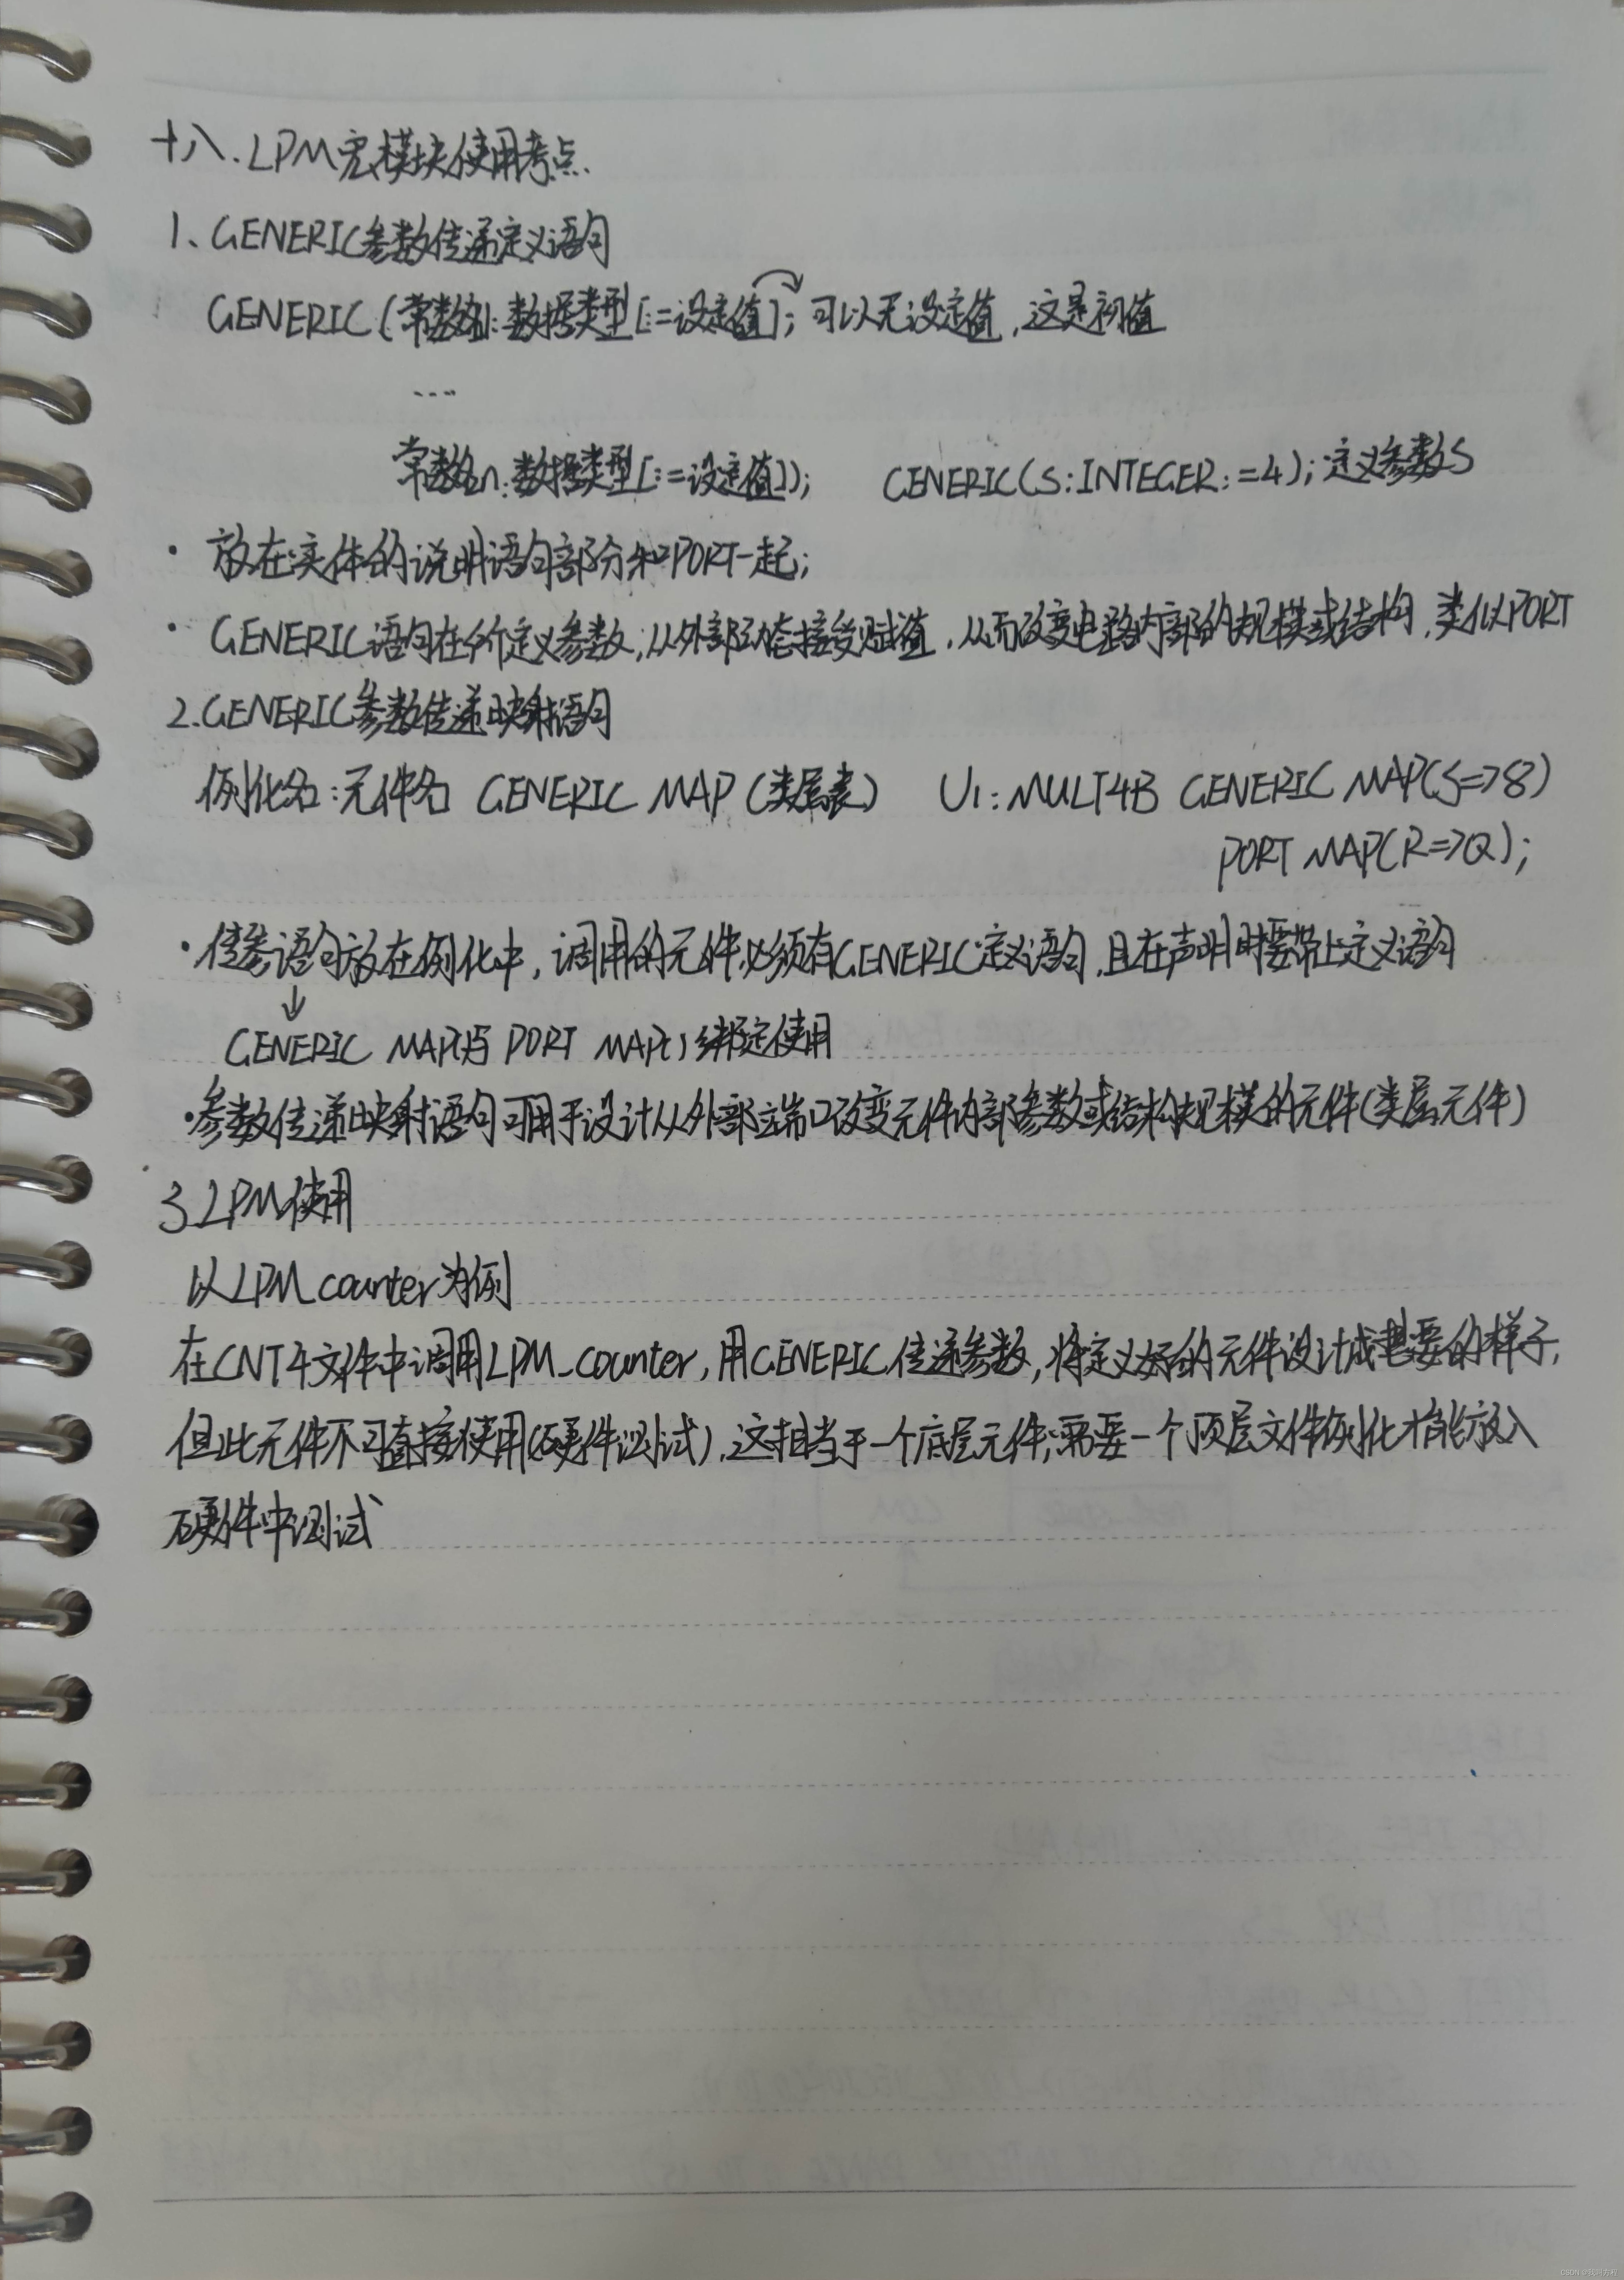 十八、LPM宏模块使用考点.
1、GENERIC参数传递定义语句
GENERIC(常数名1:数据类型[:=设定值]; 可以无设定值,这是初值
...
常数名n:数据类型[:=设定值]); GENERIC(S:INTEGER:=4);定义参数S
· 放在实体的说明语句部分和PORT一起;
· GENERIC语句在所定义参数;从外部动态接受赋值,从而改变电路内部的规模或结构,类似PORT
2.GENERIC参数传递映射语句
例化名:元件名 GENERIC MAP(类属表) U1:MULT4B GENERIC MAP(S=>8)
PORT MAP(R=>Q);
·传参语句放在例化中,调用的元件必须有GENERIC定义语句,且在声明时要带上定义语句
↓
GENERIC MAP()与 PORT MAP()绑定使用
·参数传递映射语句可用于设计从外部端口改变元件内部参数或结构规模的元件(类属元件)
3.LPM使用
以LPM_counter为例
在CNT4文件中调用LPM_counter,用GENERIC传递参数,将定义好的元件设计成想要的样子,
但此元件不可直接使用(硬件测试),这相当于一个底层元件,需要一个顶层文件例化才能放入
硬件中测试